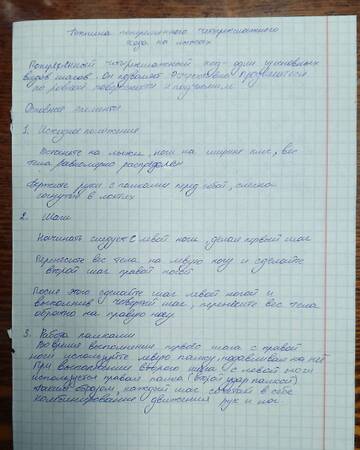 Техника попеременного четырехшажного
хода на лыжах
Попеременный четырехшажный ход - один из основных
видов шагов. Он позволяет продвигаться
по ровной поверхности и подъемам.
Основные элементы
1. Исходное положение
Встаньте на лыжи, ноги на ширине плеч, вес
тела равномерно распределен
Держите руки с палками перед собой, слегка
согнутый в локтях
2. Шаги
Начинать следует с левой ноги, делая первый шаг
Перенесите вес тела на левую ногу и сделайте
второй шаг правой ногой
После этого сделайте шаг левой ногой и
выполнив четвертый шаг, перенесите вес тела
обратно на правую ногу
3. Работа палками
Во время выполнения первого шага с правой
ноги используйте левую палку, надавливая на неё
При выполнении второго шага с левой ноги
используется правая палка (второй удар палкой)
Таким образом, каждый шаг сочетает в себе
комбинирование движения рук и ног